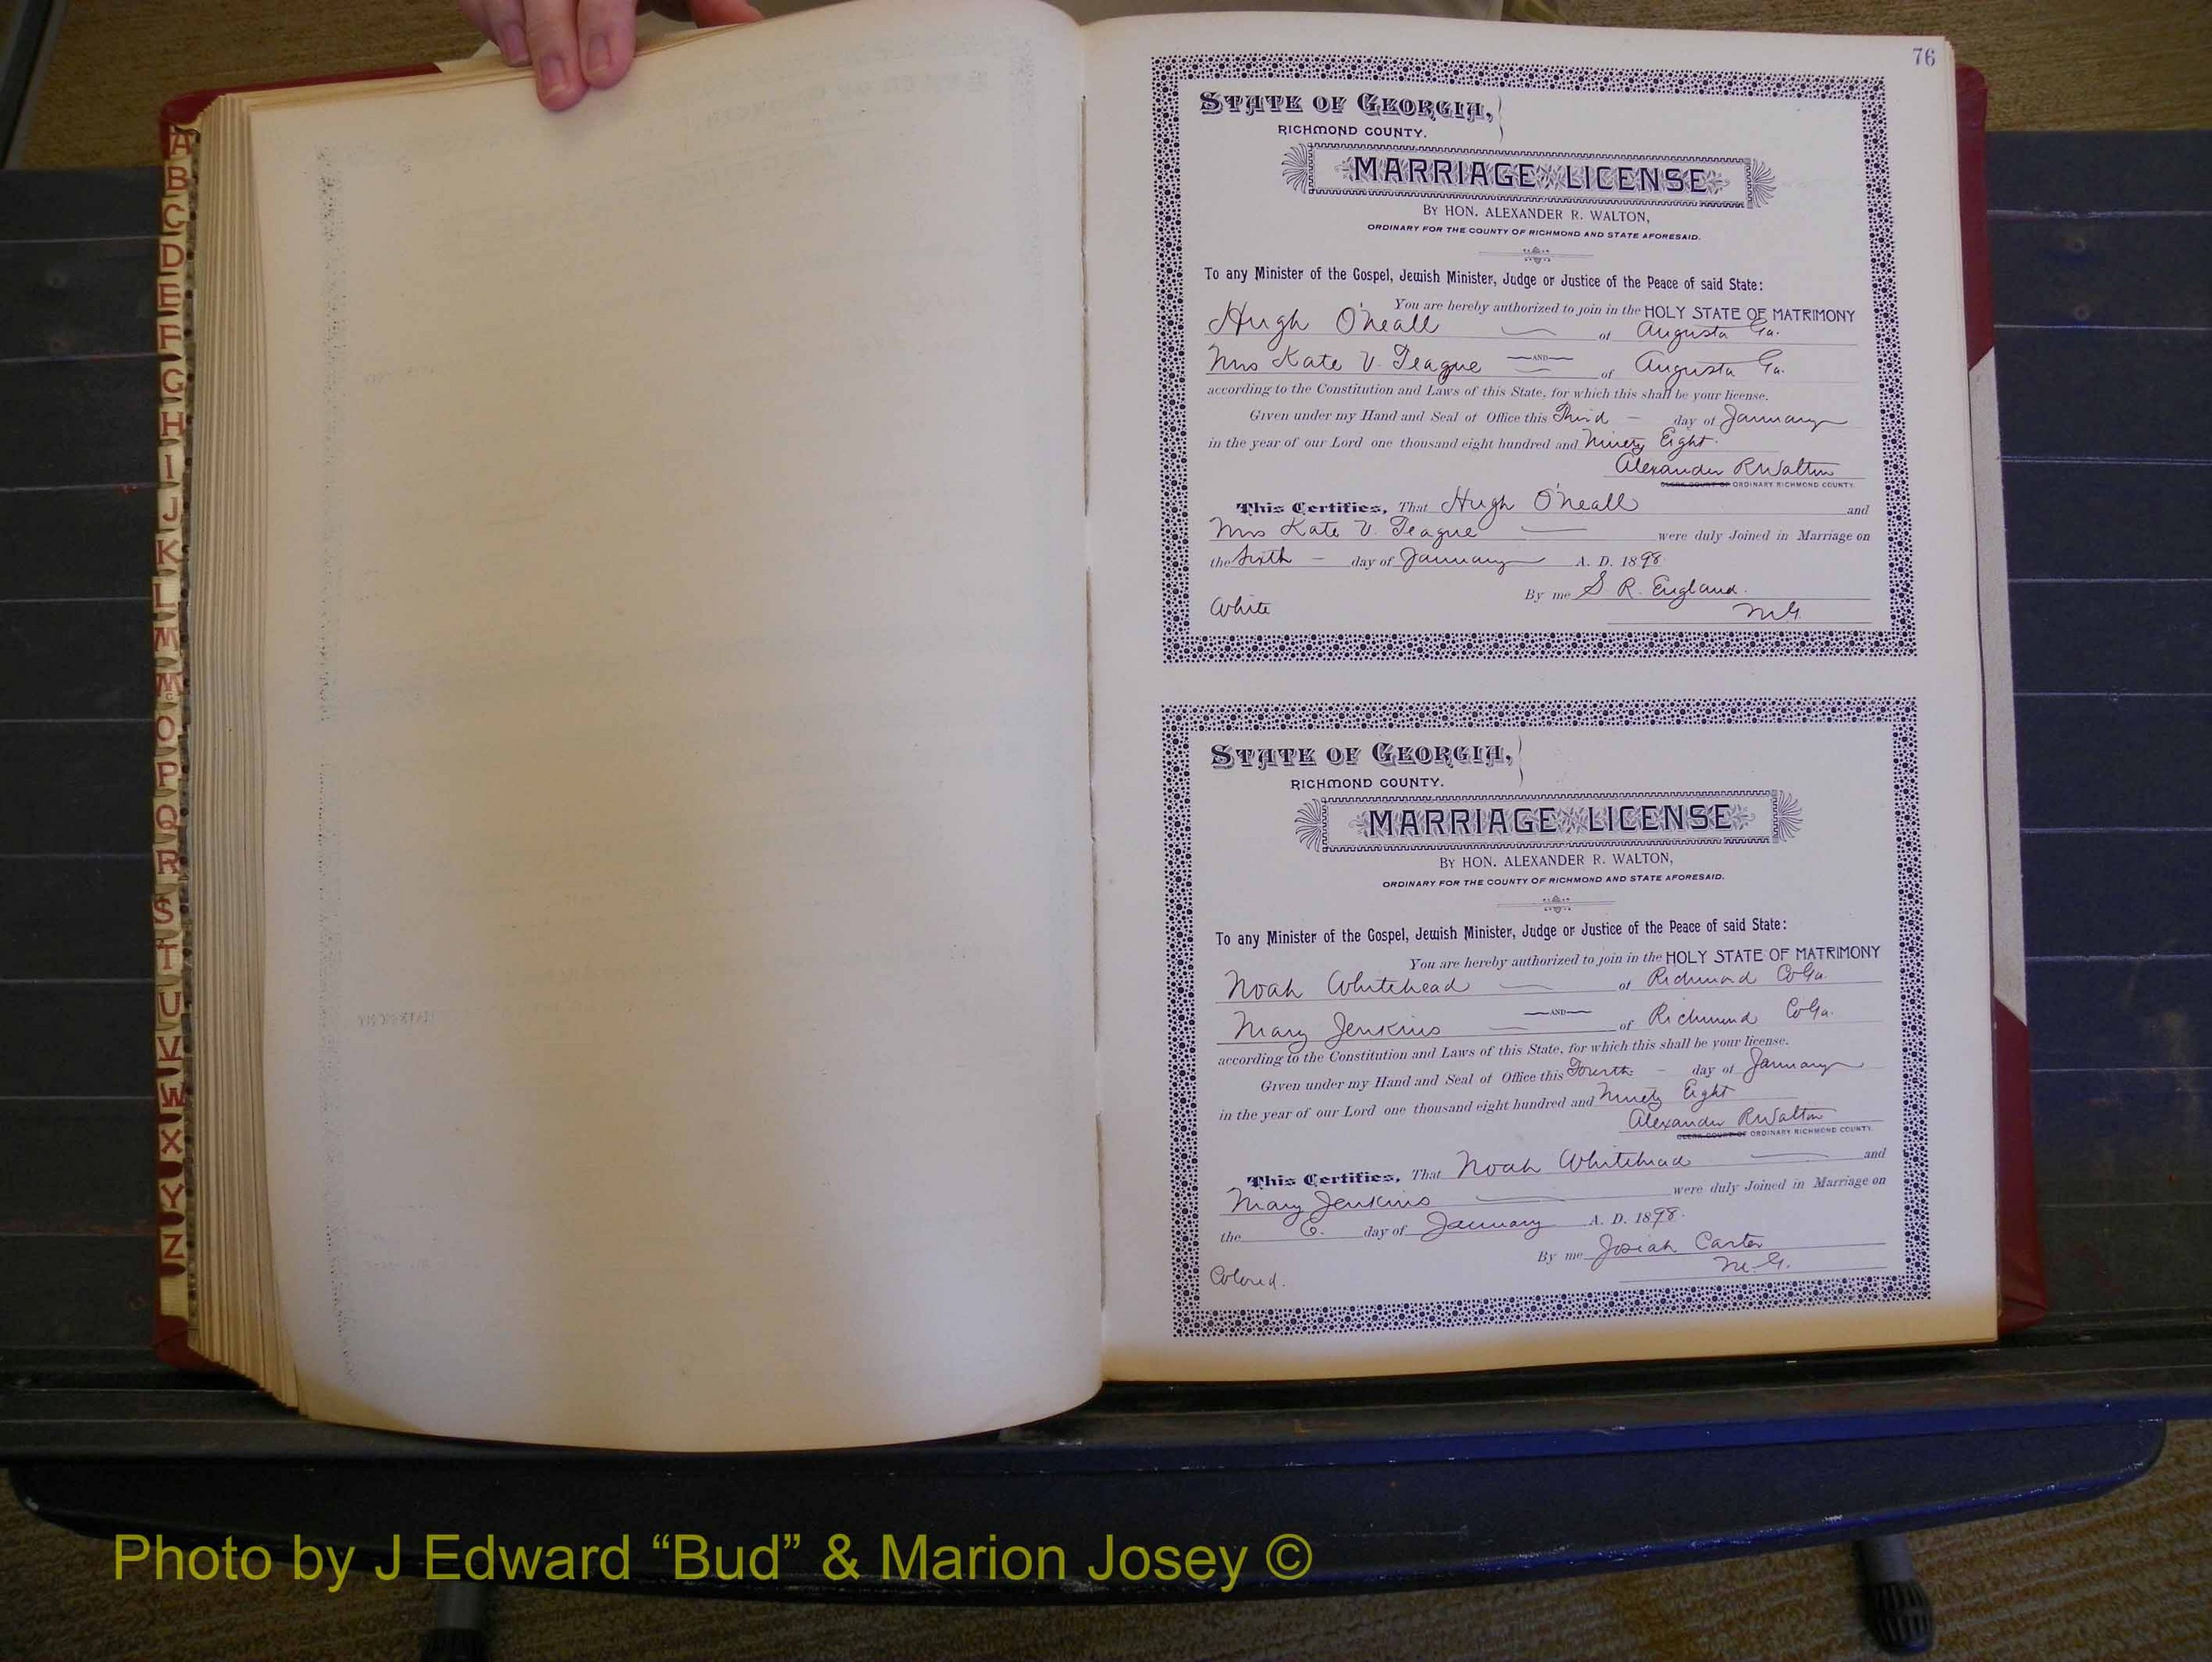 A
B
C
D
E
F
G
H
I
J
K
L
M
Mc
O
P
Q
R
S
T
U
V
W
X
Y
Z
76
STATE OF GEORGIA,
RICHMOND COUNTY.
MARRIAGE LICENSE
BY HON. ALEXANDER R. WALTON,
ORDINARY FOR THE COUNTY OF RICHMOND AND STATE AFORESAID.
To any Minister of the Gospel, Jewish Minister, Judge or Justice of the Peace of said State:
You are hereby authorized to join in the HOLY STATE OF MATRIMONY
Hugh O'Neall of Augusta Ga.
AND
Mrs Kate V. Teague of Augusta Ga.
according to the Constitution and Laws of this State, for which this shall be your license.
Given under my Hand and Seal of Office this Third day of January
in the year of our Lord one thousand eight hundred and Ninety Eight.
Alexander R Walton
CLERK COURT OF ORDINARY RICHMOND COUNTY.
This Certifies, That Hugh O'Neall and
Mrs Kate V. Teague were duly Joined in Marriage on
the Sixth day of January A. D. 1898
By me S R. England.
White M G.
STATE OF GEORGIA,
RICHMOND COUNTY.
MARRIAGE LICENSE
BY HON. ALEXANDER R. WALTON,
ORDINARY FOR THE COUNTY OF RICHMOND AND STATE AFORESAID.
To any Minister of the Gospel, Jewish Minister, Judge or Justice of the Peace of said State:
You are hereby authorized to join in the HOLY STATE OF MATRIMONY
Noah Whitehead of Richmond Co Ga.
AND
Mary Jenkins of Richmond Co Ga.
according to the Constitution and Laws of this State, for which this shall be your license.
Given under my Hand and Seal of Office this Fourth day of January
in the year of our Lord one thousand eight hundred and Ninety Eight
Alexander R Walton
CLERK COURT OF ORDINARY RICHMOND COUNTY.
This Certifies, That Noah Whitehead and
Mary Jenkins were duly Joined in Marriage on
the 6. day of January A. D. 1898.
By me Josiah Carter
Colored. M. G.
Photo by J Edward “Bud” & Marion Josey ©